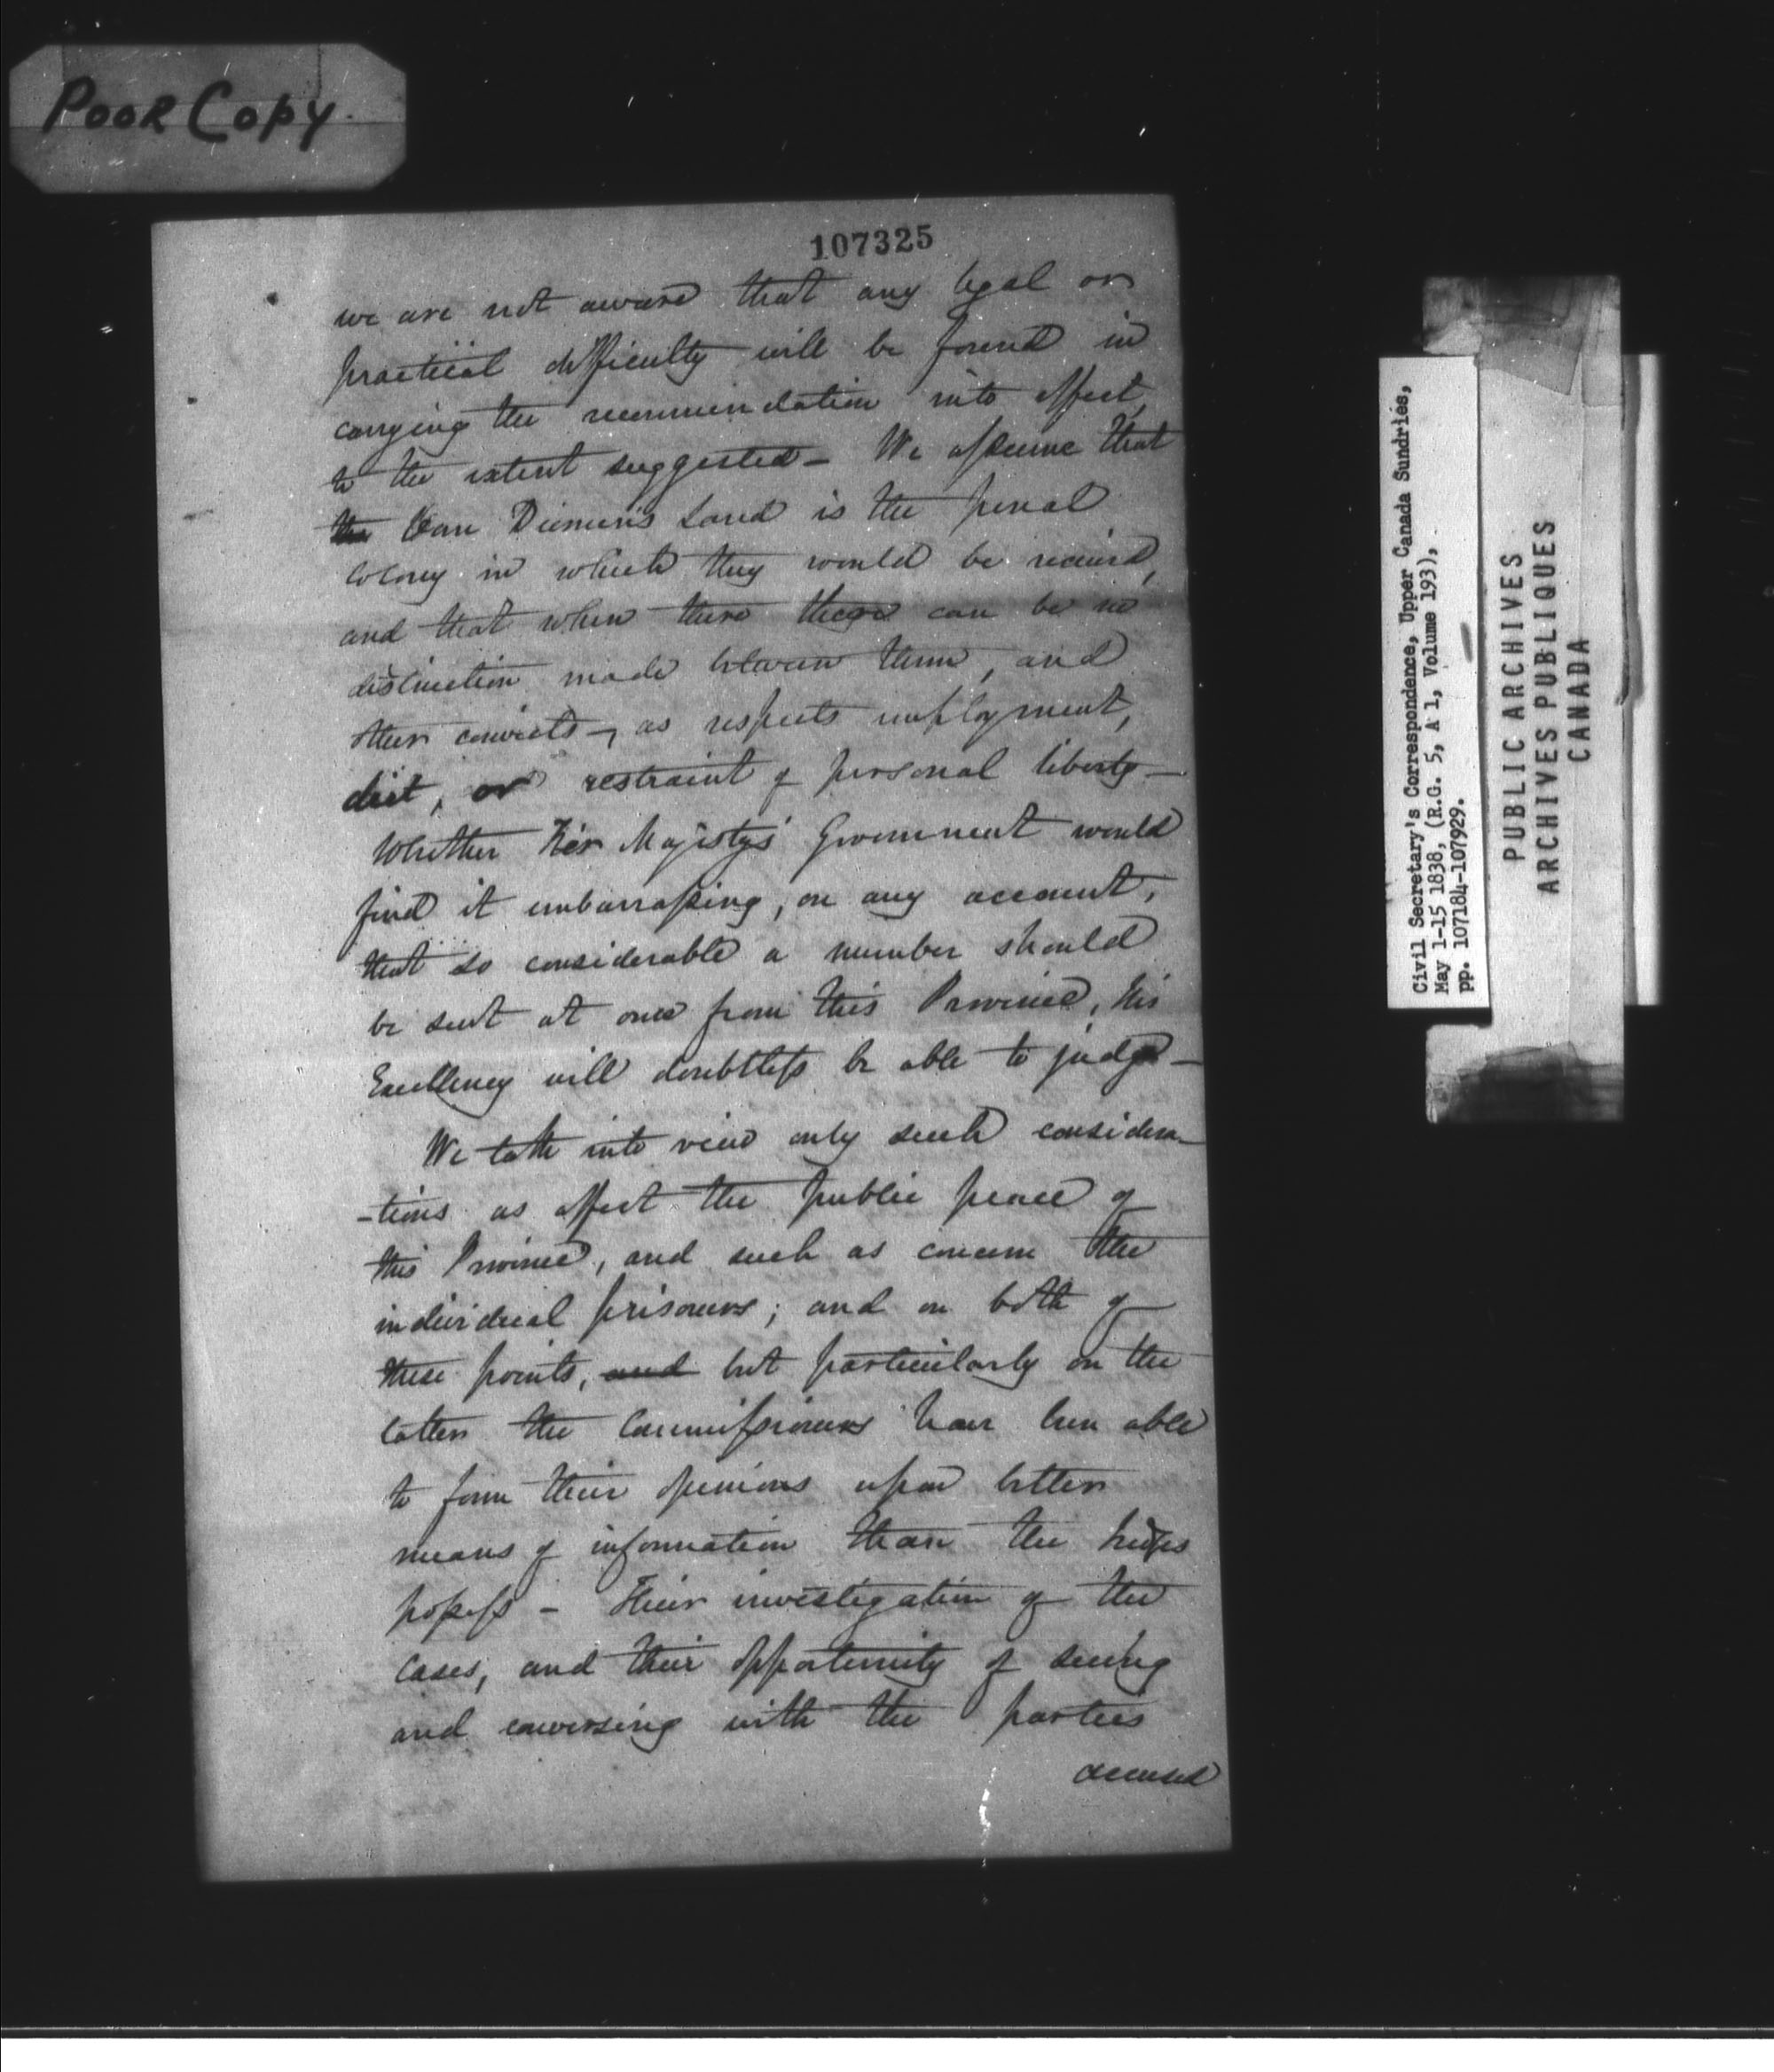 Poor Copy.
107325
we are not aware that any legal or
practical difficulty will be found in
carrying the recommendation into effect,
to the extent suggested - We assume that
the Van Diemen's Land is the penal
colony in which they would be received,
and that when there there can be no
distinction made between them, and
other convicts -, as respects employment,
diet, or restraint of personal liberty -
Whether Her Majesty's Government would
find it embarrassing, on any account,
that so considerable a number should
be sent at once from this Province, His
Excellency will doubtless be able to judge -
We take into view only such considera-
-tions as affect the public peace of
this Province, and such as concern the
individual prisoners; and on both of
these points, and but particularly on the
latter the Commissioners have been able
to form their opinions upon better
means of information than the Judges
possess - Their investigation of the
cases, and their opportunity of seeing
and conversing with the parties
accused
Civil Secretary's Correspondence, Upper Canada Sundries,
May 1-15 1838, (R.G. 5, A 1, Volume 193),
pp. 107184-107929.
PUBLIC ARCHIVES
ARCHIVES PUBLIQUES
CANADA